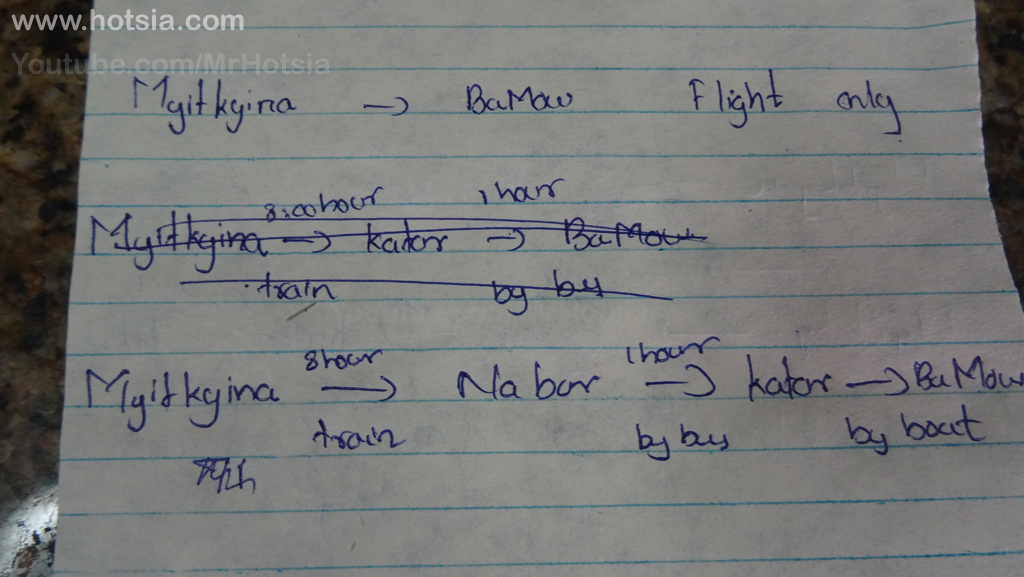 www.hotsia.com
Youtube.com/MrHotsia
Myitkyina → BaMow Flight only
8:00 hour 1 hour
Myitkyina → kator → BaMow
train by by
8 hour 1 hour
Myitkyina → Nabor → kator → BaMow
train by bus by boat